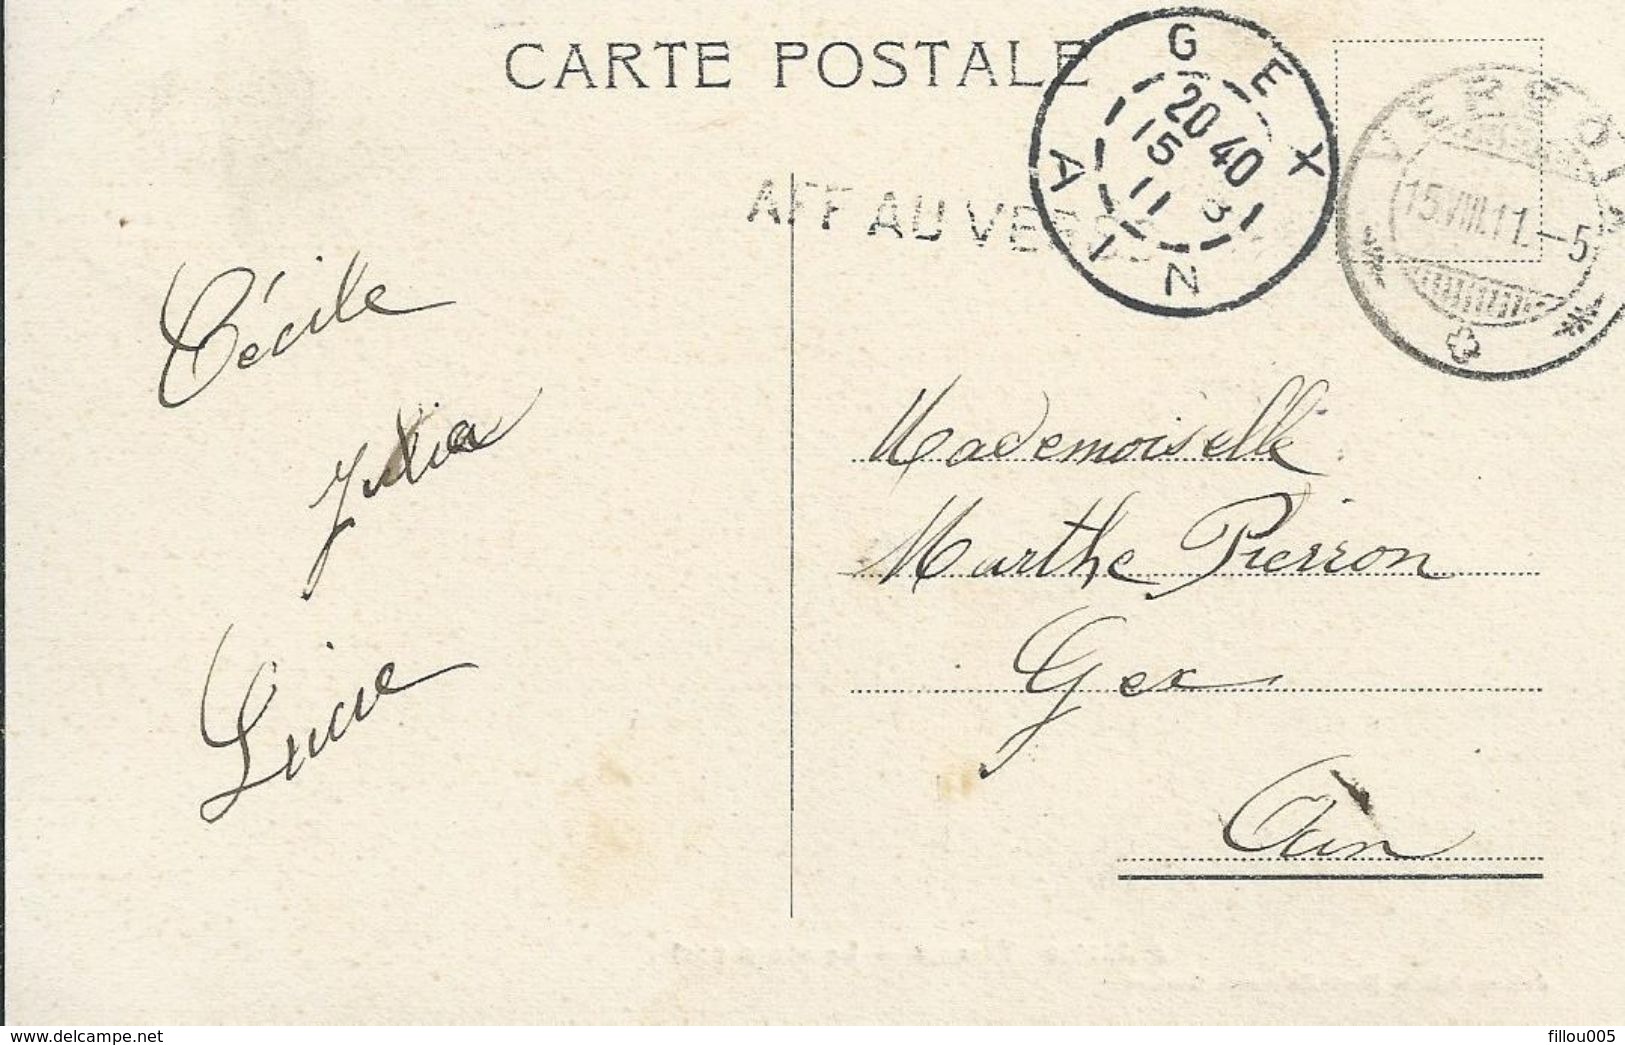 CARTE POSTALE
GEX
20 40
15 8
11
AIN
VERSOIX
15.VIII.11.-5
AFF AU VERSO
Cécile
Julia
Lucie
Mademoiselle
Marthe Pierron
Gex
Ain
delcampe.net
fillou005